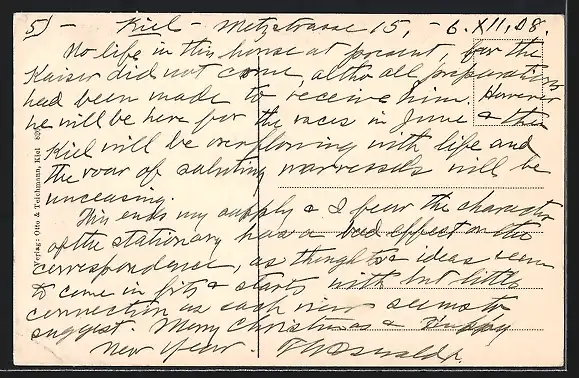 5) - Kiel - Metzstrasse 15, - 6. XII, 08.
No life in this house at present, for the
Kaiser did not come, altho all preparations
had been made to receive him. However
he will be here for the races in June & then
Kiel will be overflowing with life and
the roar of saluting warvessels will be
unceasing.
This ends my supply & I fear the character
of the stationary has a bad effect on the
correspondence, as thoughts & ideas seem
to come in fits & starts with but little
connection as each view seems to
suggest. Merry Christmas & Happy
New Year.
Verlag: Otto & Teichmann, Kiel